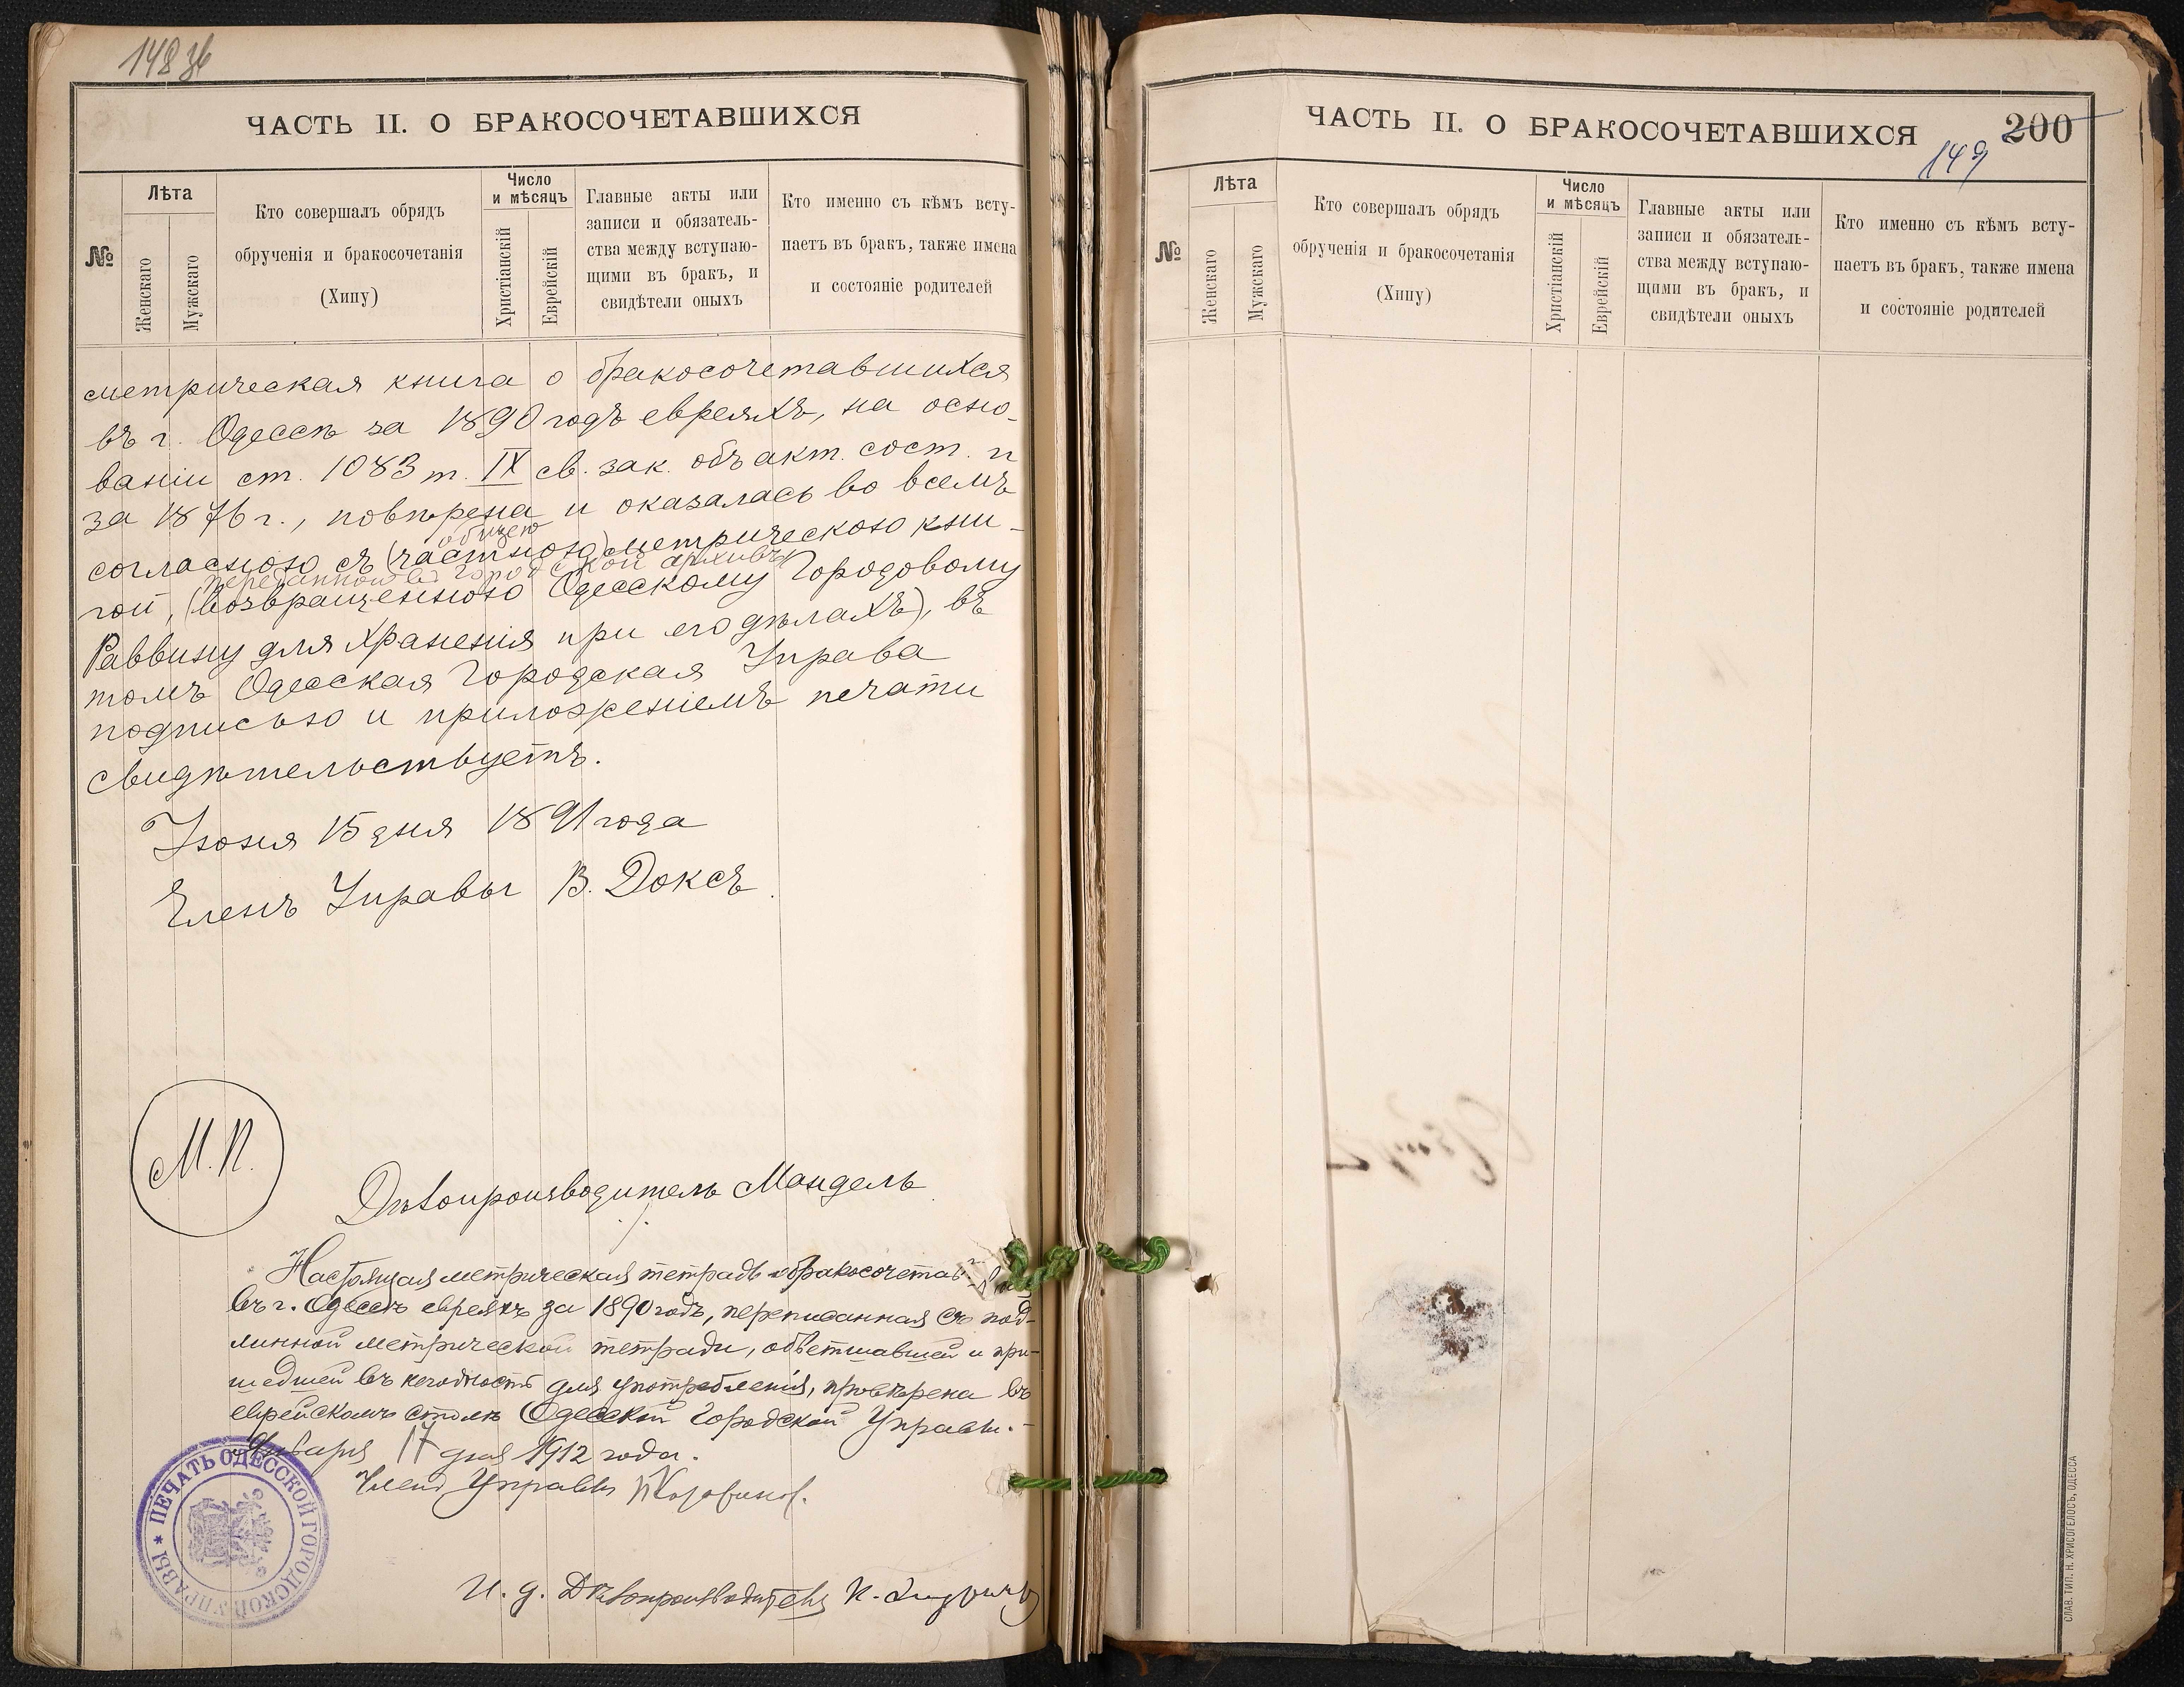 148 зв
ЧАСТЬ II. О БРАКОСОЧЕТАВШИХСЯ
№
Лѣта
Женскаго
Мужскаго
Кто совершалъ обрядъ
обрученія и бракосочетанія
(Хипу)
Число
и мѣсяцъ
Христіанскій
Еврейскій
Главные акты или
записи и обязатель-
ства между вступаю-
щими въ бракъ, и
свидѣтели оныхъ
Кто именно съ кѣмъ всту-
паетъ въ бракъ, также имена
и состояніе родителей
метрическая книга о бракосочетавшихся
въ г. Одессѣ за 1890 годъ евреяхъ, на осно-
ваніи ст. 1083 т. IX св. зак. объ акт. сост. и
за 1876 г., повѣрена и оказалась во всемъ
общею
согласною съ (частною) метрическою кни-
переданной въ городской архивъ
гой, (возвращенною Одесскому Городовому
Раввину для храненія при его дѣлахъ), въ
томъ Одесская Городская Управа
подписью и приложеніемъ печати
свидѣтельствуетъ.
Іюня 15 дня 1891 года
Членъ Управы В. Доксъ.
М. П.
Дѣлопроизводитель Мандель
Настоящая метрическая тетрадь о бракосочетав
въ г. Одессѣ евреяхъ за 1890 годъ, переписанная съ под-
линной метрической тетради, обветшавшей и при-
шедшей въ негодность для употребленія, провѣрена въ
еврейскомъ столѣ Одесской Городской Управы.-
Января 17 дня 1912 года.
Членъ Управы
И. д. Дѣлопроизводителя
ПЕЧАТЬ ОДЕССКОЙ ГОРОДСКОЙ УПРАВЫ *
ЧАСТЬ II. О БРАКОСОЧЕТАВШИХСЯ
200
149
№
Лѣта
Женскаго
Мужскаго
Кто совершалъ обрядъ
обрученія и бракосочетанія
(Хипу)
Число
и мѣсяцъ
Христіанскій
Еврейскій
Главные акты или
записи и обязатель-
ства между вступаю-
щими въ бракъ, и
свидѣтели оныхъ
Кто именно съ кѣмъ всту-
паетъ въ бракъ, также имена
и состояніе родителей
СЛАВ. ТИП. Н. ХРИСОГЕЛОСЪ, ОДЕССА